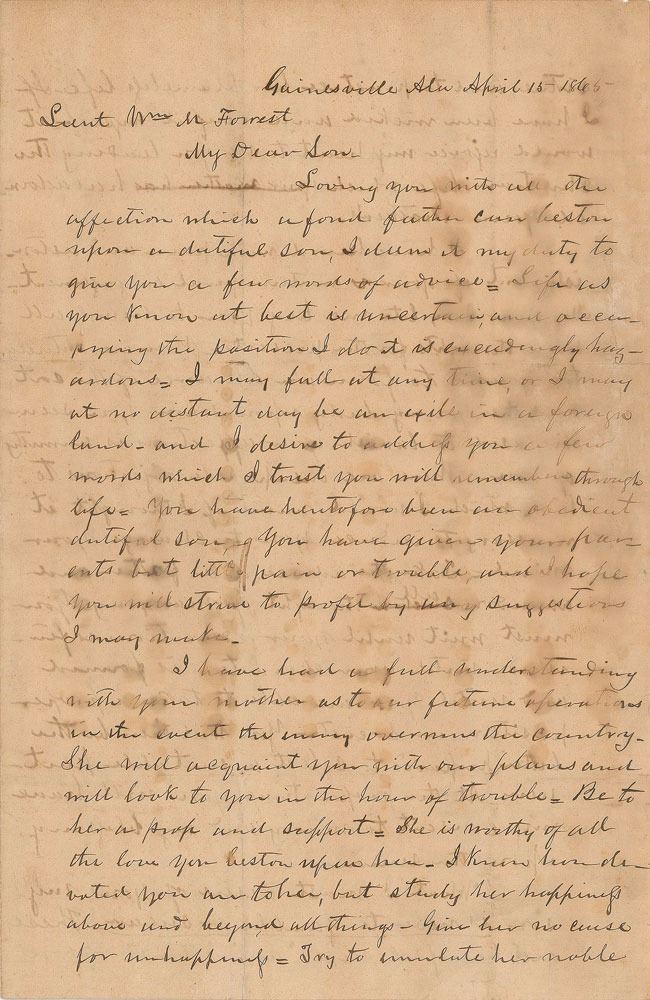 Gainesville Ala April 15 - 1865
Lieut Wm M Forrest
My Dear Son -
Loving you with all the
affection which a fond father can bestow
upon a dutiful son, I deem it my duty to
give you a few words of advice = Life as
you know at best is uncertain, and occu-
pying the position I do it is exceedingly haz-
ardous = I may fall at any time, or I may
at no distant day be an exile in a foreign
land - and I desire to address you a few
words which I trust you will remember through
life = You have heretofore been an obedient
dutiful son, You have given your par-
ents but little pain or trouble, and I hope
you will strive to profit by any suggestions
I may make -
I have had a full understanding
with your mother as to our future operations
in the event the enemy overruns the country -
She will acquaint you with our plans and
will look to you in the hour of trouble = Be to
her a prop and support = She is worthy of all
the love you bestow upon her - I know how de-
voted you are to her, but study her happiness
above and beyond all things - Give her no cause
for unhappiness = Try to emulate her noble